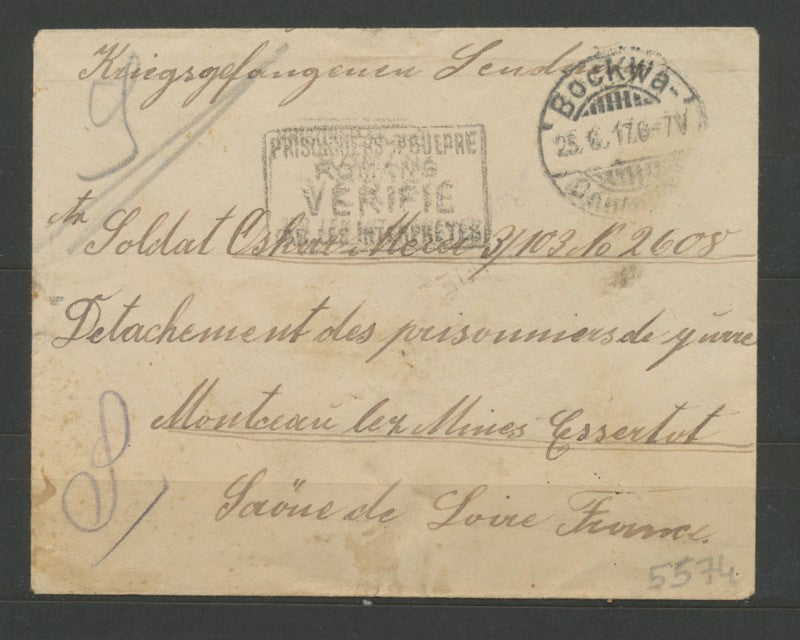 Kriegsgefangenen Sendung
9
Bockwa-
25. 6. 17. 6-7 V
PRISONNIERS DE GUERRE
ROMANS
VERIFIE
PAR LES INTERPRETES
An
Soldat Oskar Meier 3/103 No 2608
Detachement des prisonniers de gurre
Montceau lez Mines Essertot
Saône de Loire France.
5574